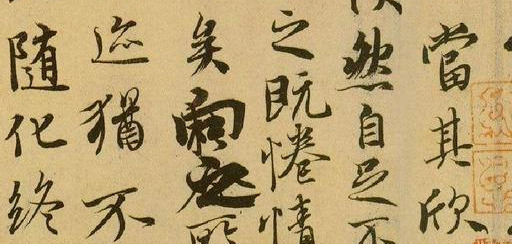 當其欣
然自足不
之既惓情
矣向之所
迹猶不
随化終